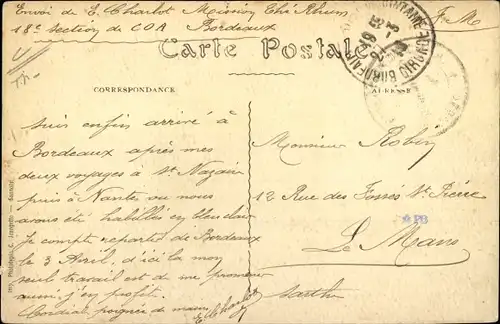 Envoi de E. Charlot Mission Thé Rhum F.M
18e Section de COA Bordeaux
Carte Postale
CORRESPONDANCE
ADRESSE
Suis enfin arrivé à
Bordeaux après mes
deux voyages à St Nazaire
puis à Nantes ou nous
avons été habillés en bleu clair
Je compte repartir de Bordeaux
le 3 Avril, d'ici la mon
seul travail est de me promener
aussi j'en profite.
Cordial poignée de main
E Charlot
Monsieur Robin
12 Rue des Fossés St Pierre
Le Mans
Sarthe